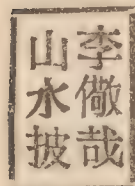 李儆哉
山水披